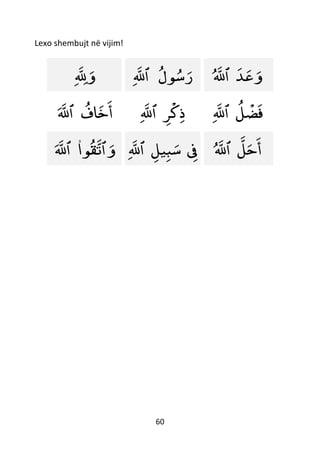 Lexo shembujt në vijim!
وَعَدَ ٱللَّهُ رَسُولُ ٱللَّهِ وَلِلَّهِ
فَضْلُ ٱللَّهِ ذِكْرِ ٱللَّهِ أَخَافُ ٱللَّهَ
أَحَلَّ ٱللَّهُ فِى سَبِيلِ ٱللَّهِ وَٱتَّقُوا۟ ٱللَّهَ
60